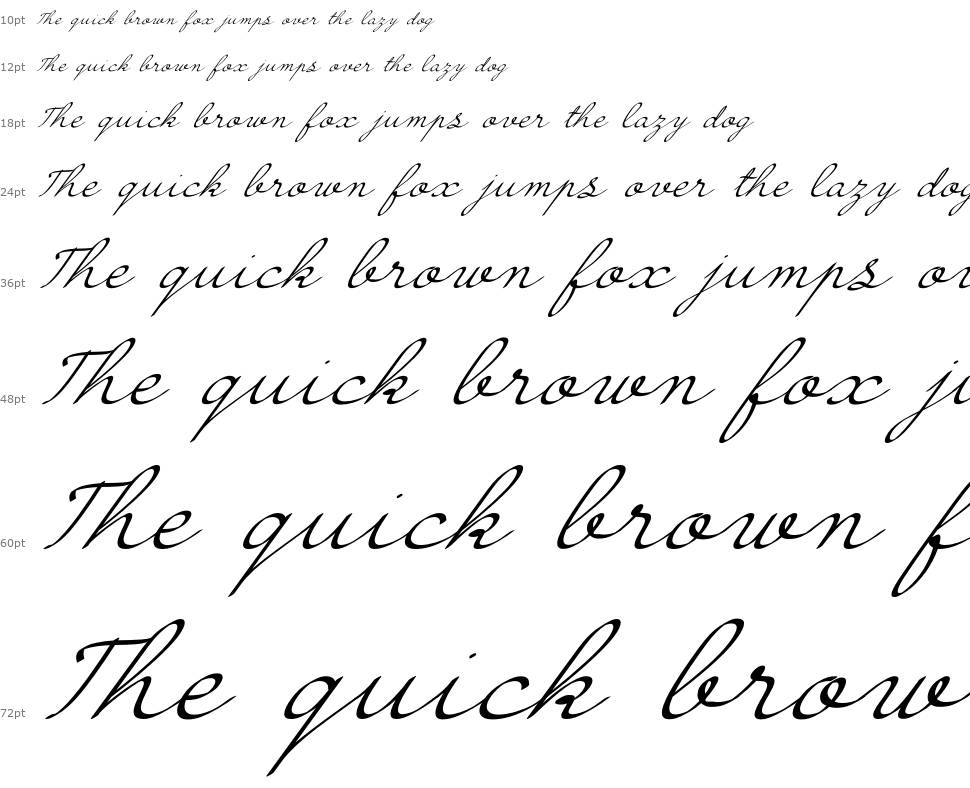 10pt The quick brown fox jumps over the lazy dog
12pt The quick brown fox jumps over the lazy dog
18pt The quick brown fox jumps over the lazy dog
24pt The quick brown fox jumps over the lazy dog
36pt The quick brown fox jumps ov
48pt The quick brown fox ju
60pt The quick brown f
72pt The quick brow